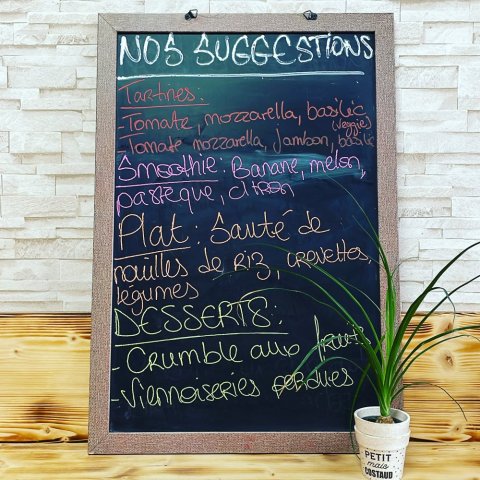 NOS SUGGESTIONS
Tartines:
- Tomate, mozzarella, basilic
(veggies)
- Tomate mozzarella, jambon, basilic
Smoothie: Banane, melon,
pastèque, citron
Plat: Sauté de
nouilles de Riz, crevettes,
légumes
DESSERTS:
- Crumble aux fruits
- Viennoiseries perdues
PETIT
mais
COSTAUD